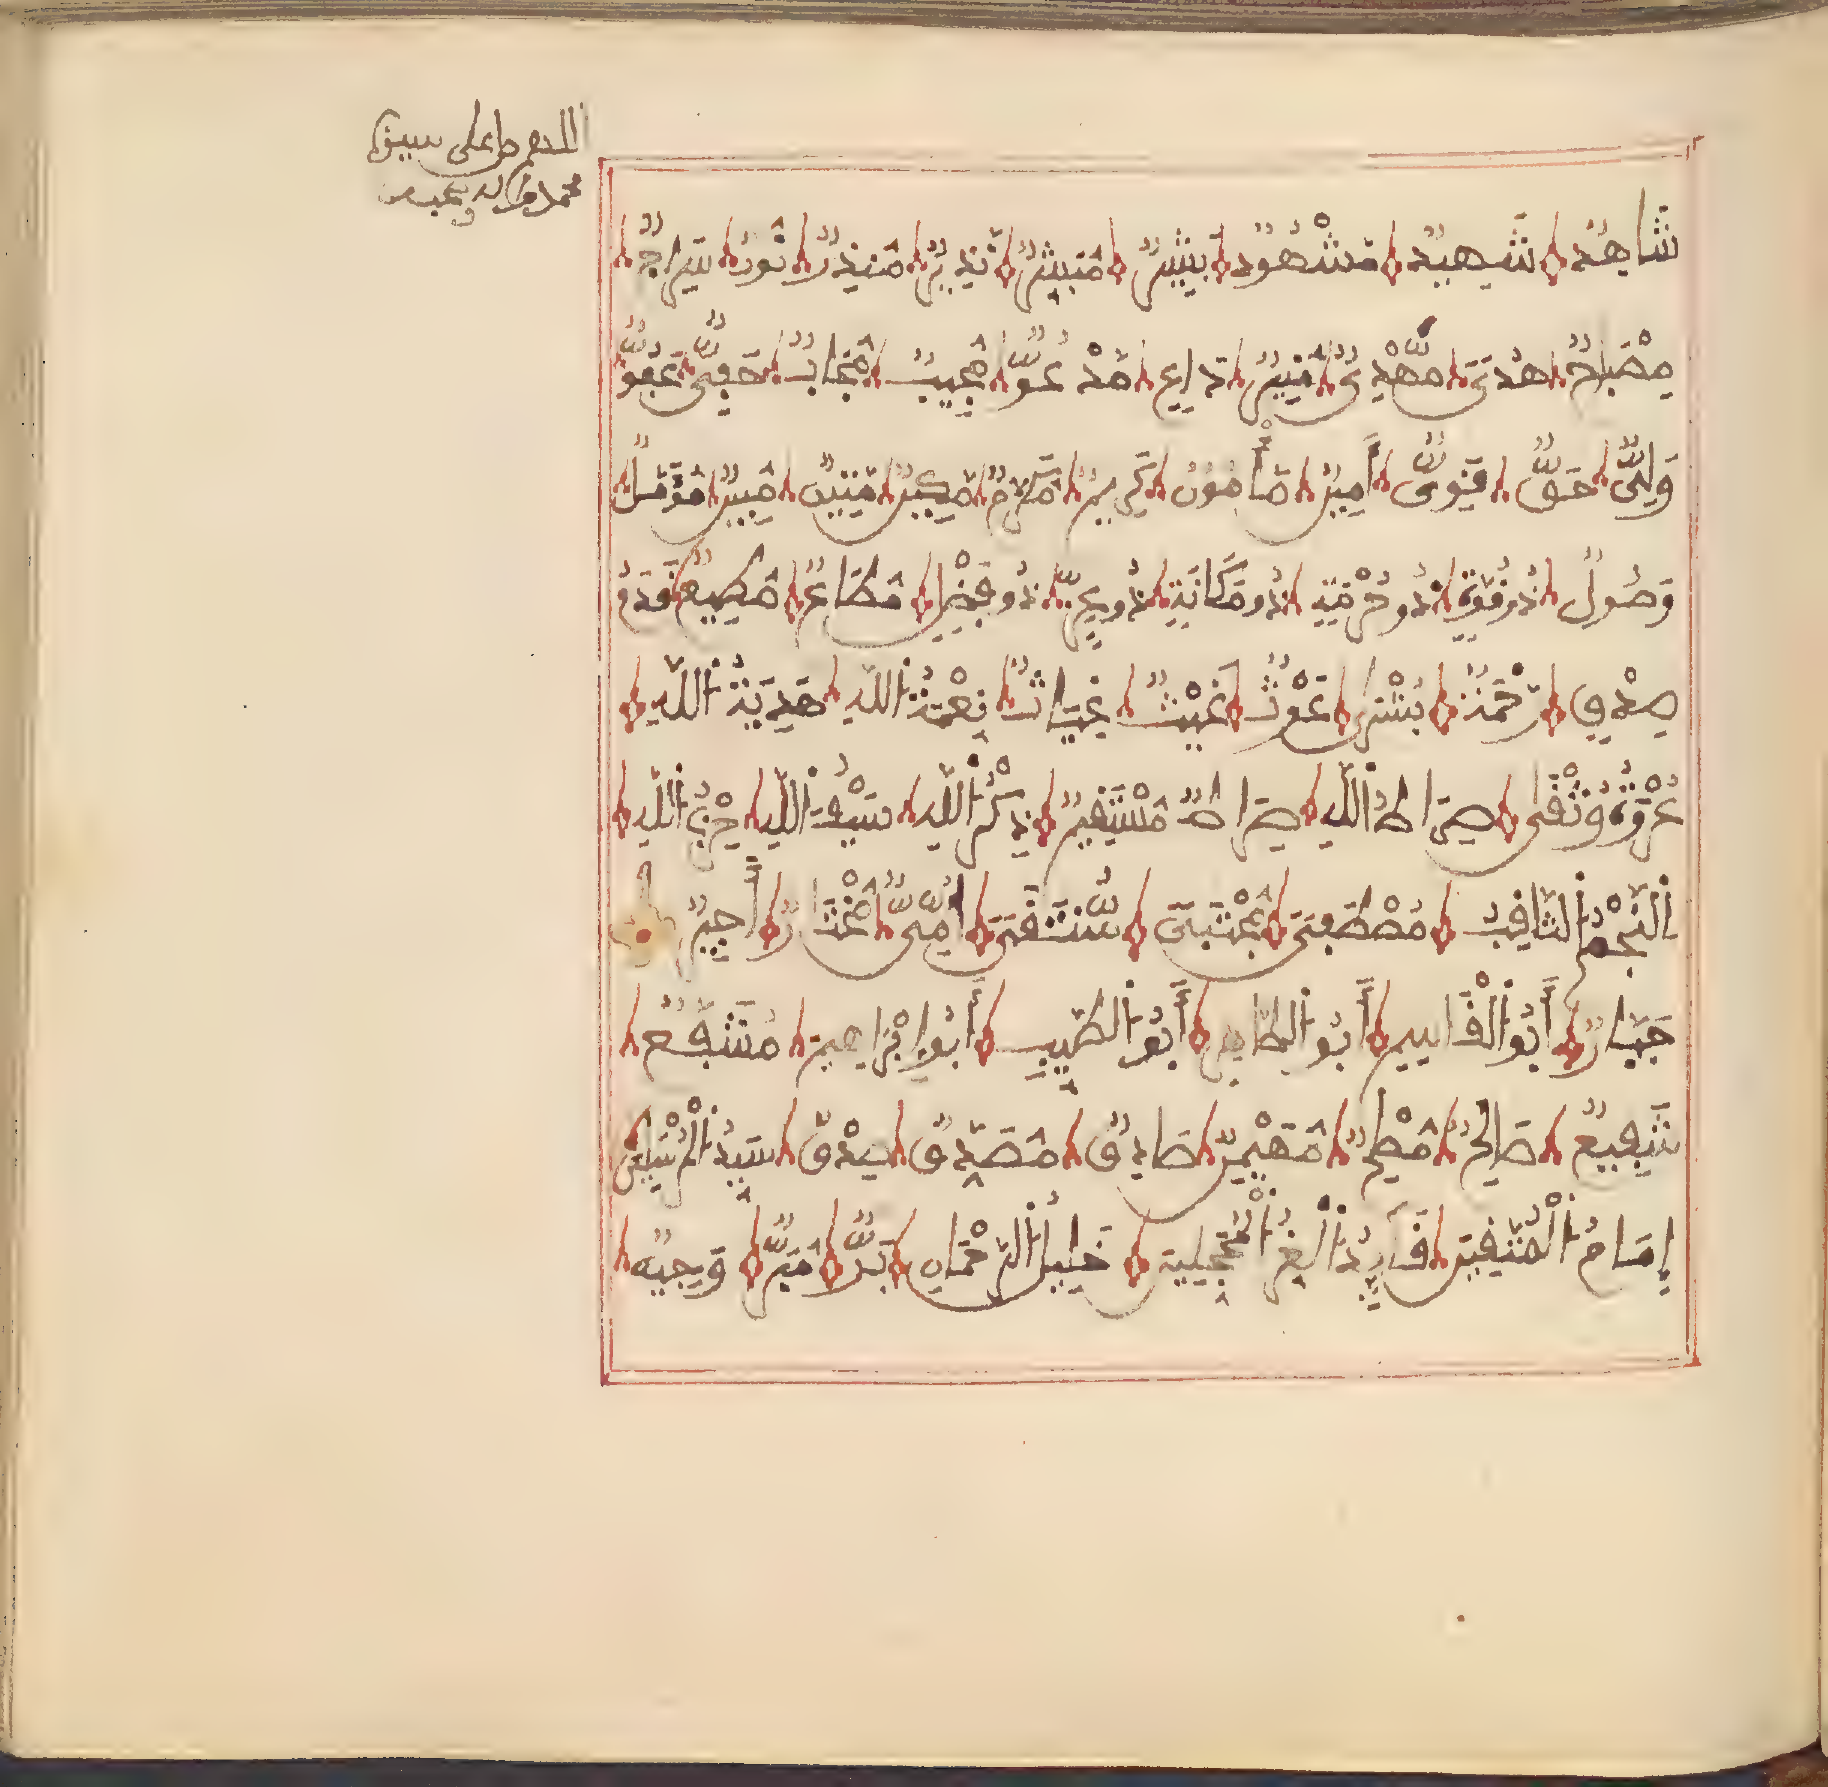 اللهم صل على سيدنا
محمد وءاله وصحبه
شَاهِدٌ شَهِيدٌ مَشْهُودٌ بَشِيرٌ مُبَشِّرٌ نَذِيرٌ مُنْذِرٌ نُورٌ سِرَاجٌ
مِصْبَاحٌ هُدًى مَهْدِيٌّ مُنِيرٌ دَاعٍ مَدْعُوٌّ مُجِيبٌ مُجَابٌ حَفِيٌّ عَفُوٌّ
وَلِيٌّ حَقٌّ قَوِيٌّ أَمِينٌ مَأْمُونٌ كَرِيمٌ مُكَرَّمٌ مَكِينٌ مَتِينٌ مُبِينٌ مُؤَمَّلٌ
وَصُولٌ ذُو قُوَّةٍ ذُو حُرْمَةٍ ذُو مَكَانَةٍ ذُو عِزٍّ ذُو فَضْلٍ مُطَاعٌ مُطِيعٌ قَدَمُ
صِدْقٍ رَحْمَةٌ بُشْرَى غَوْثٌ غَيْثٌ غِيَاثٌ نِعْمَةُ اللَّهِ هَدِيَّةُ اللَّهِ
عُرْوَةٌ وُثْقَى صِرَاطُ اللَّهِ صِرَاطٌ مُسْتَقِيمٌ ذِكْرُ اللَّهِ سَيْفُ اللَّهِ حِزْبُ اللَّهِ
النَّجْمُ الثَّاقِبُ مُصْطَفَى مُجْتَبَى مُنْتَقَى أُمِّيٌّ مُخْتَارٌ أَجِيرٌ
جَبَّارٌ أَبُو الْقَاسِمِ أَبُو الطَّاهِرِ أَبُو الطَّيِّبِ أَبُو إِبْرَاهِيمَ مُشَفَّعٌ
شَفِيعٌ صَالِحٌ مُصْلِحٌ مُهَيْمِنٌ صَادِقٌ مُصَدَّقٌ صِدْقٌ سَيِّدُ الْمُرْسَلِينَ
إِمَامُ الْمُتَّقِينَ قَائِدُ الْغُرِّ الْمُحَجَّلِينَ خَلِيلُ الرَّحْمَانِ بَرٌّ مُبَرٌّ وَجِيهٌ